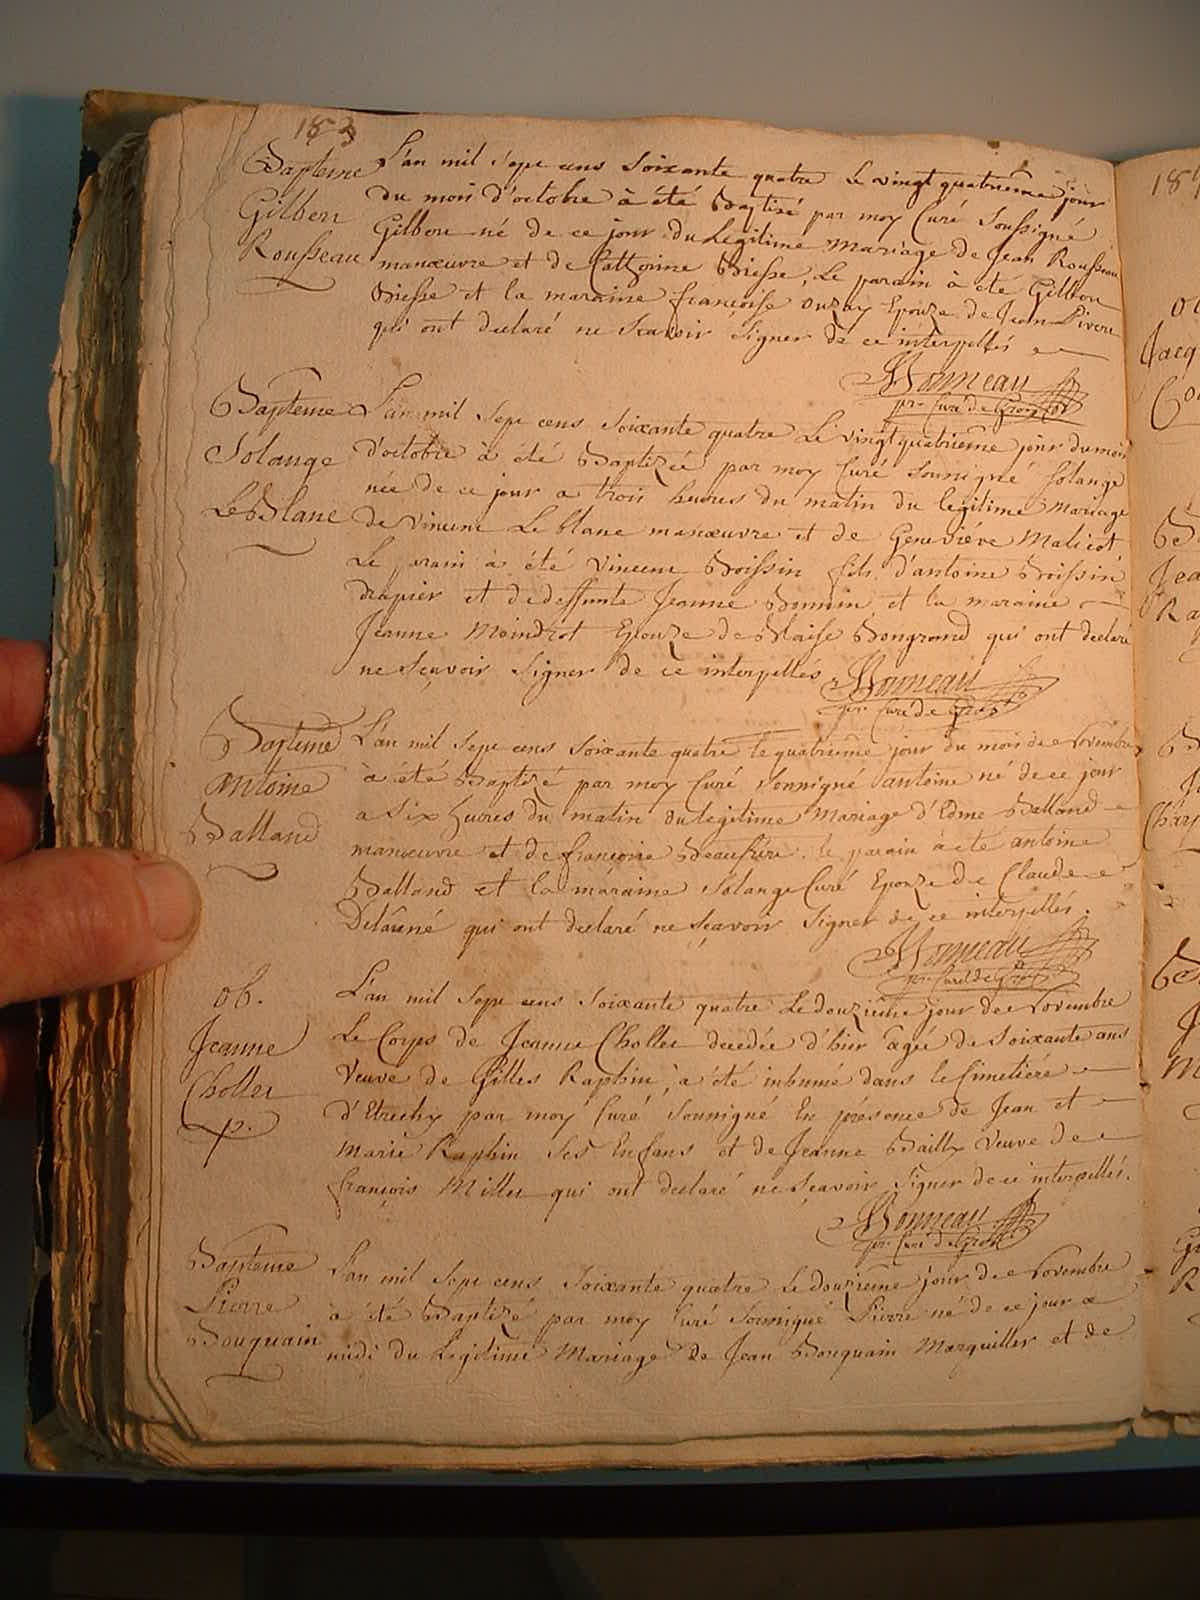 183
Bapteme
Gilbert
Rousseau
L'an mil sept cens soixante quatre le vingt quatrieme jour
du mois d'octobre à été Baptisé par moy Curé soussigné
Gilbert né de ce jour du legitime mariage de Jean Rousseau
manœuvre et de Catherine Biesse, Le parain à été Gilbert
Biesse et la maraine françoise Epouze de Jean
qui ont declaré ne scavoir signer de ce interpellés
Monneau
pr. Curé de
Bapteme
Solange
LeBlanc
L'an mil sept cens soixante quatre Le vingtquatrieme jour du mois
d'octobre à été Baptizée par moy Curé soussigné Solange
née de ce jour a trois heures du matin du legitime mariage
de vincent Le blanc manœuvre et de Geneviéve Malicot
Le parain à été vincent Boissin fils d'antoine Boissin
drapier et de deffunte Jeanne et la maraine
Jeanne Moindrot Epouze de Blaise Bongrand qui ont declaré
ne sçavoir signer de ce interpellés
Monneau
pr. Curé de
Bapteme
Antoine
Balland
L'an mil sept cens soixante quatre le quatrieme jour du mois de Novembre
à été Baptizé par moy Curé soussigné antoine né de ce jour
a six heures du matin du legitime Mariage d'Edme Balland
manœuvre et de françoise Beaufrère. le parain à été antoine
Balland et la maraine Solange Curé Epouze de Claude
Delauné qui ont declaré ne sçavoir signer de ce interpellés.
Monneau
pr. Curé de
ob.
Jeanne
Chollet
p.
L'an mil sept cens soixante quatre Le douzieme jour de Novembre
Le Corps de Jeanne Chollet decedée d'hier agée de soixante ans
Veuve de Gilles Raphin, à été inhumé dans le Cimetiére
d'Etrechy par moy Curé soussigné En présence de Jean et
Marie Raphin ses Enfans et de Jeanne Bailly veuve de
françois Millet qui ont declaré ne sçavoir signer de ce interpellés.
Monneau
pr. Curé de
Bapteme
Pierre
Bouquain
L'an mil sept cens soixante quatre Le douzieme jour de Novembre
à été Baptizé par moy Curé soussigné Pierre né de ce jour a
midi du Legitime Mariage de Jean Bouquain Marguiller et de